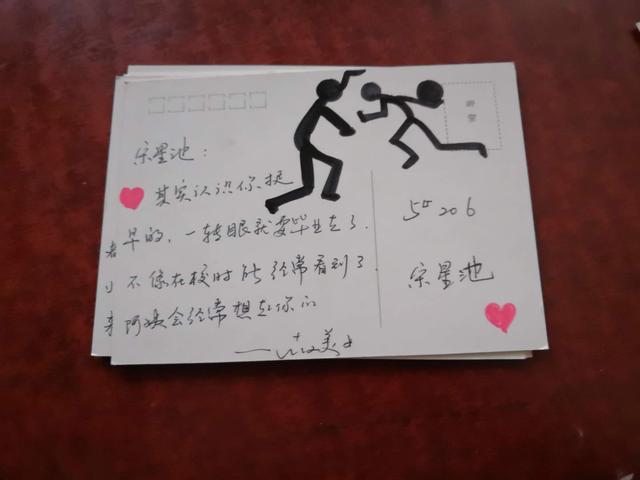 宋星池：
其实认识你挺
早的，一转眼就要毕业走了，
不像在校时能经常看到了
阿姨会经常想起你的
5# 206
宋星池